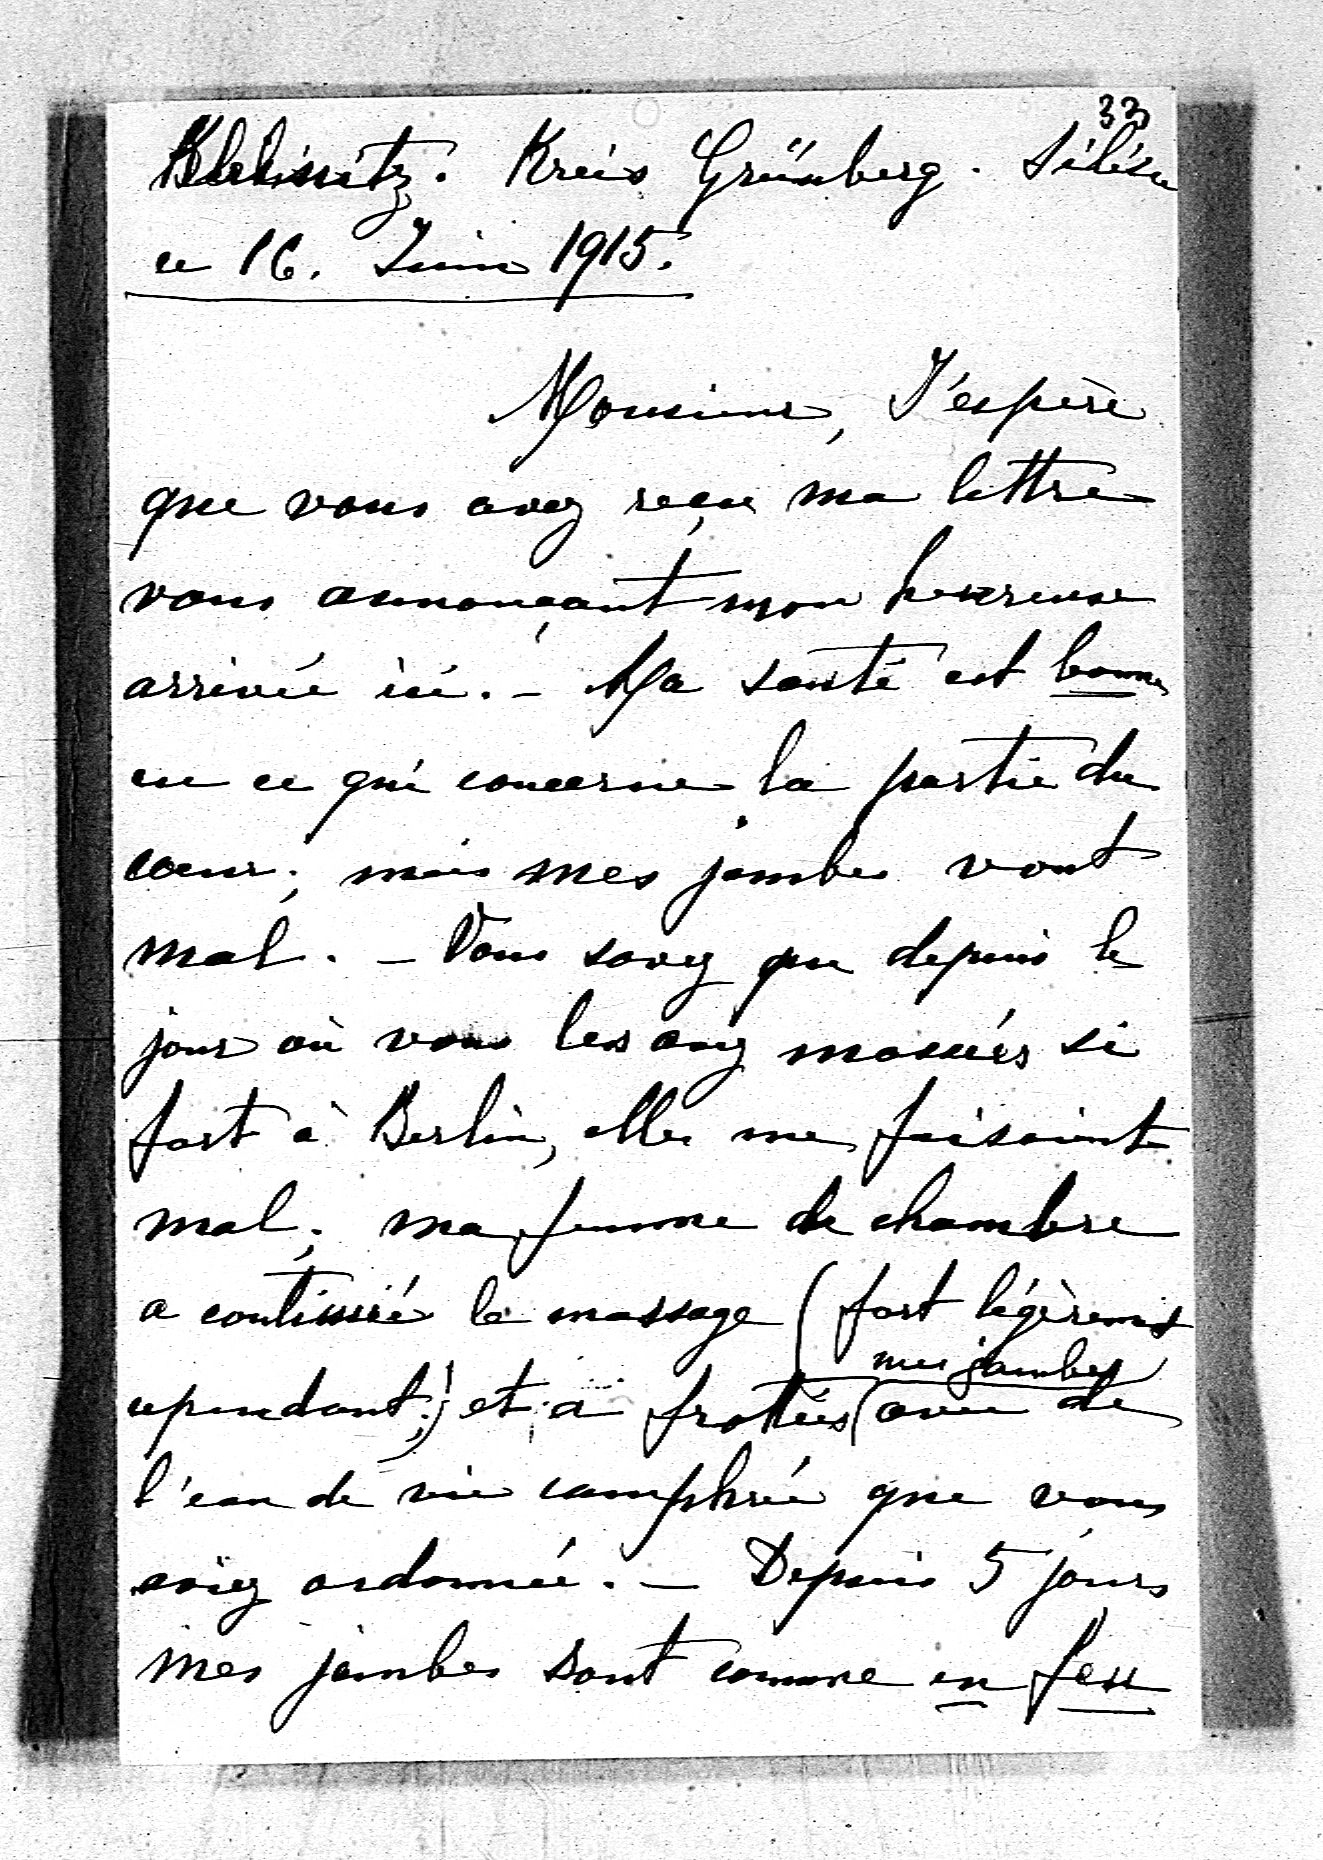 33
Kleinitz. Kreis Grünberg. Silésie
ce 16. Juin 1915.
Monsieur, J'espère
que vous avez reçu ma lettre
vous annonçant mon heureuse
arrivée ici. - Ma santé est bonne
en ce qui concerne la partie du
cœur; mais mes jambes vont
mal. - Vous savez que depuis le
jour où vous les avez massées si
fort à Berlin, elles me faisaient
mal; ma femme de chambre
a continué le massage (fort légèrement
mes jambes
cependant;) et a frottées avec de
l'eau de vie camphrée que vous
aviez ordonnée. - Depuis 5 jours
mes jambes sont comme en feu